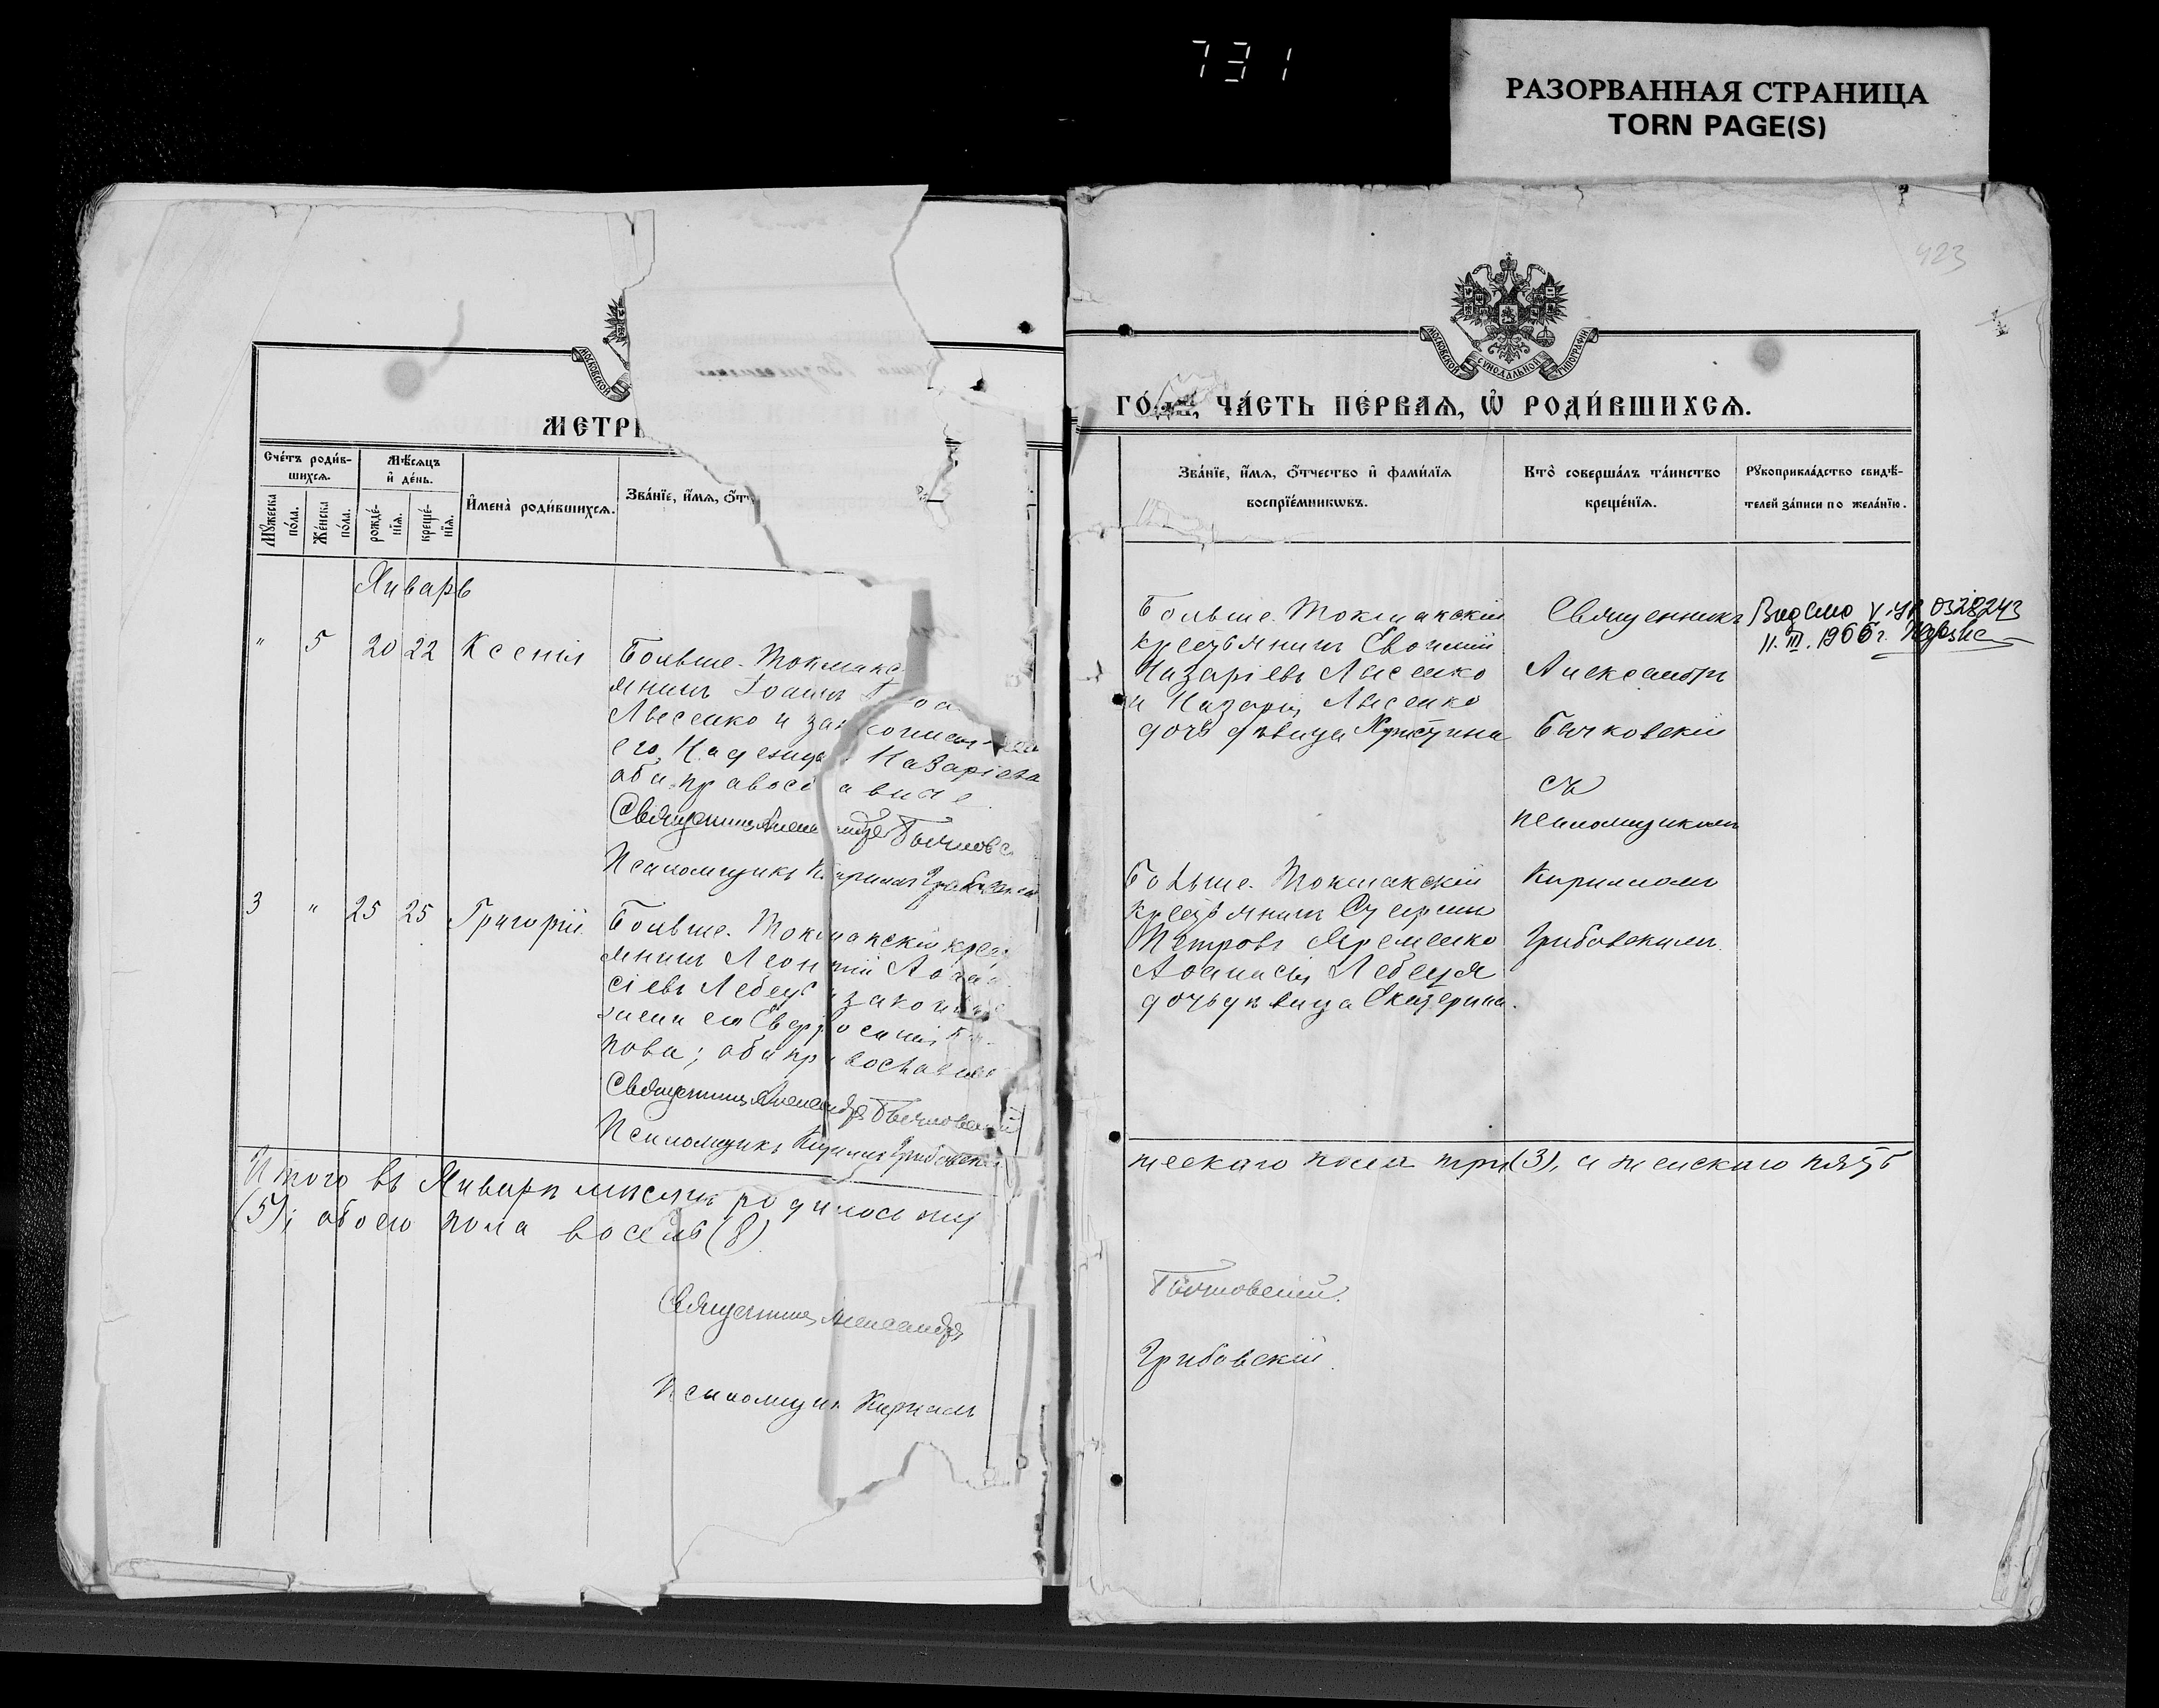 731
РАЗОРВАННАЯ СТРАНИЦА
TORN PAGE(S)
423
МОСКОВСКОЙ
МЕТРИ
Сче́тъ роди́в-
шихся.
Мѣ́сяцъ
и҆ де́нь.
Мꙋ́жеска по́ла.
Же́нска по́ла.
рожде́-нїѧ.
креще́-нїѧ.
И҆мена̀ роди́вшихсѧ.
Зва́нїе, и҆́мѧ, ѻ҆́тч
Январь
" 5 20 22 Ксенія
Больше-Токмакс
янинъ Іоаннъ
Лысенко и законная
его Надежда Назаріева
оба православные.
Священникъ Александръ Бычковс
Псаломщикъ Кириллъ Грибовскій
3 " 25 25 Григорій
Больше-Токмакскій крес
янинъ Леонтій Аѳана
сіевъ Лебедь и законная
жена его Евфросинія
пова; оба православные
Священникъ Александръ Бычковскій
Псаломщикъ Кириллъ Грибовскій
Итого въ Январѣ мѣсяцѣ родилось муж
(5); обоего пола восемь (8)
Священникъ Александръ
Псаломщикъ Кириллъ
МОСКОВСКОЙ СѴНОДАЛЬНОЙ ТИПОГРАФІИ
ГО́ ЧА́СТЬ ПЕ́РВАѦ, Ѡ҆ РОДИ́ВШИХСѦ.
Зва́нїе, и҆́мѧ, ѻ҆́тчество и҆ фами́лїѧ
воспрїе́мникѡвъ.
Кто̀ соверша́лъ та́инство
креще́нїѧ.
Рꙋкоприкла́дство свидѣ́-
телей за́писи по жела́нїю.
Больше-Токмакскій
крестьянинъ Евѳимій
Назаріевъ Лысенко
и Назарія Лысенко
дочь дѣвица Христина
Священникъ
Александръ
Бычковскій
съ
псаломщикомъ
Кирилломъ
Грибовскимъ.
Видано 0328243
11.III.1966 г.
Больше-Токмакскій
крестьянинъ
Петровъ Яременко
Аѳанасія Лебедя
дочь дѣвица Екатерина.
жескаго пола три (3), и женскаго пять
Бычковскій.
Грибовскій.